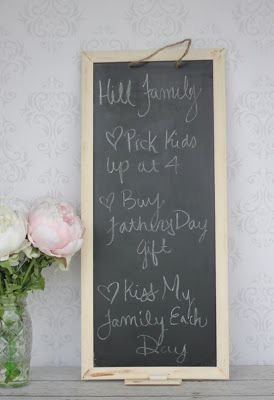 Hill Family
♡ Pick Kids
up at 4
♡ Buy
Fathers Day
gift
♡ Kiss My
Family Each
Day